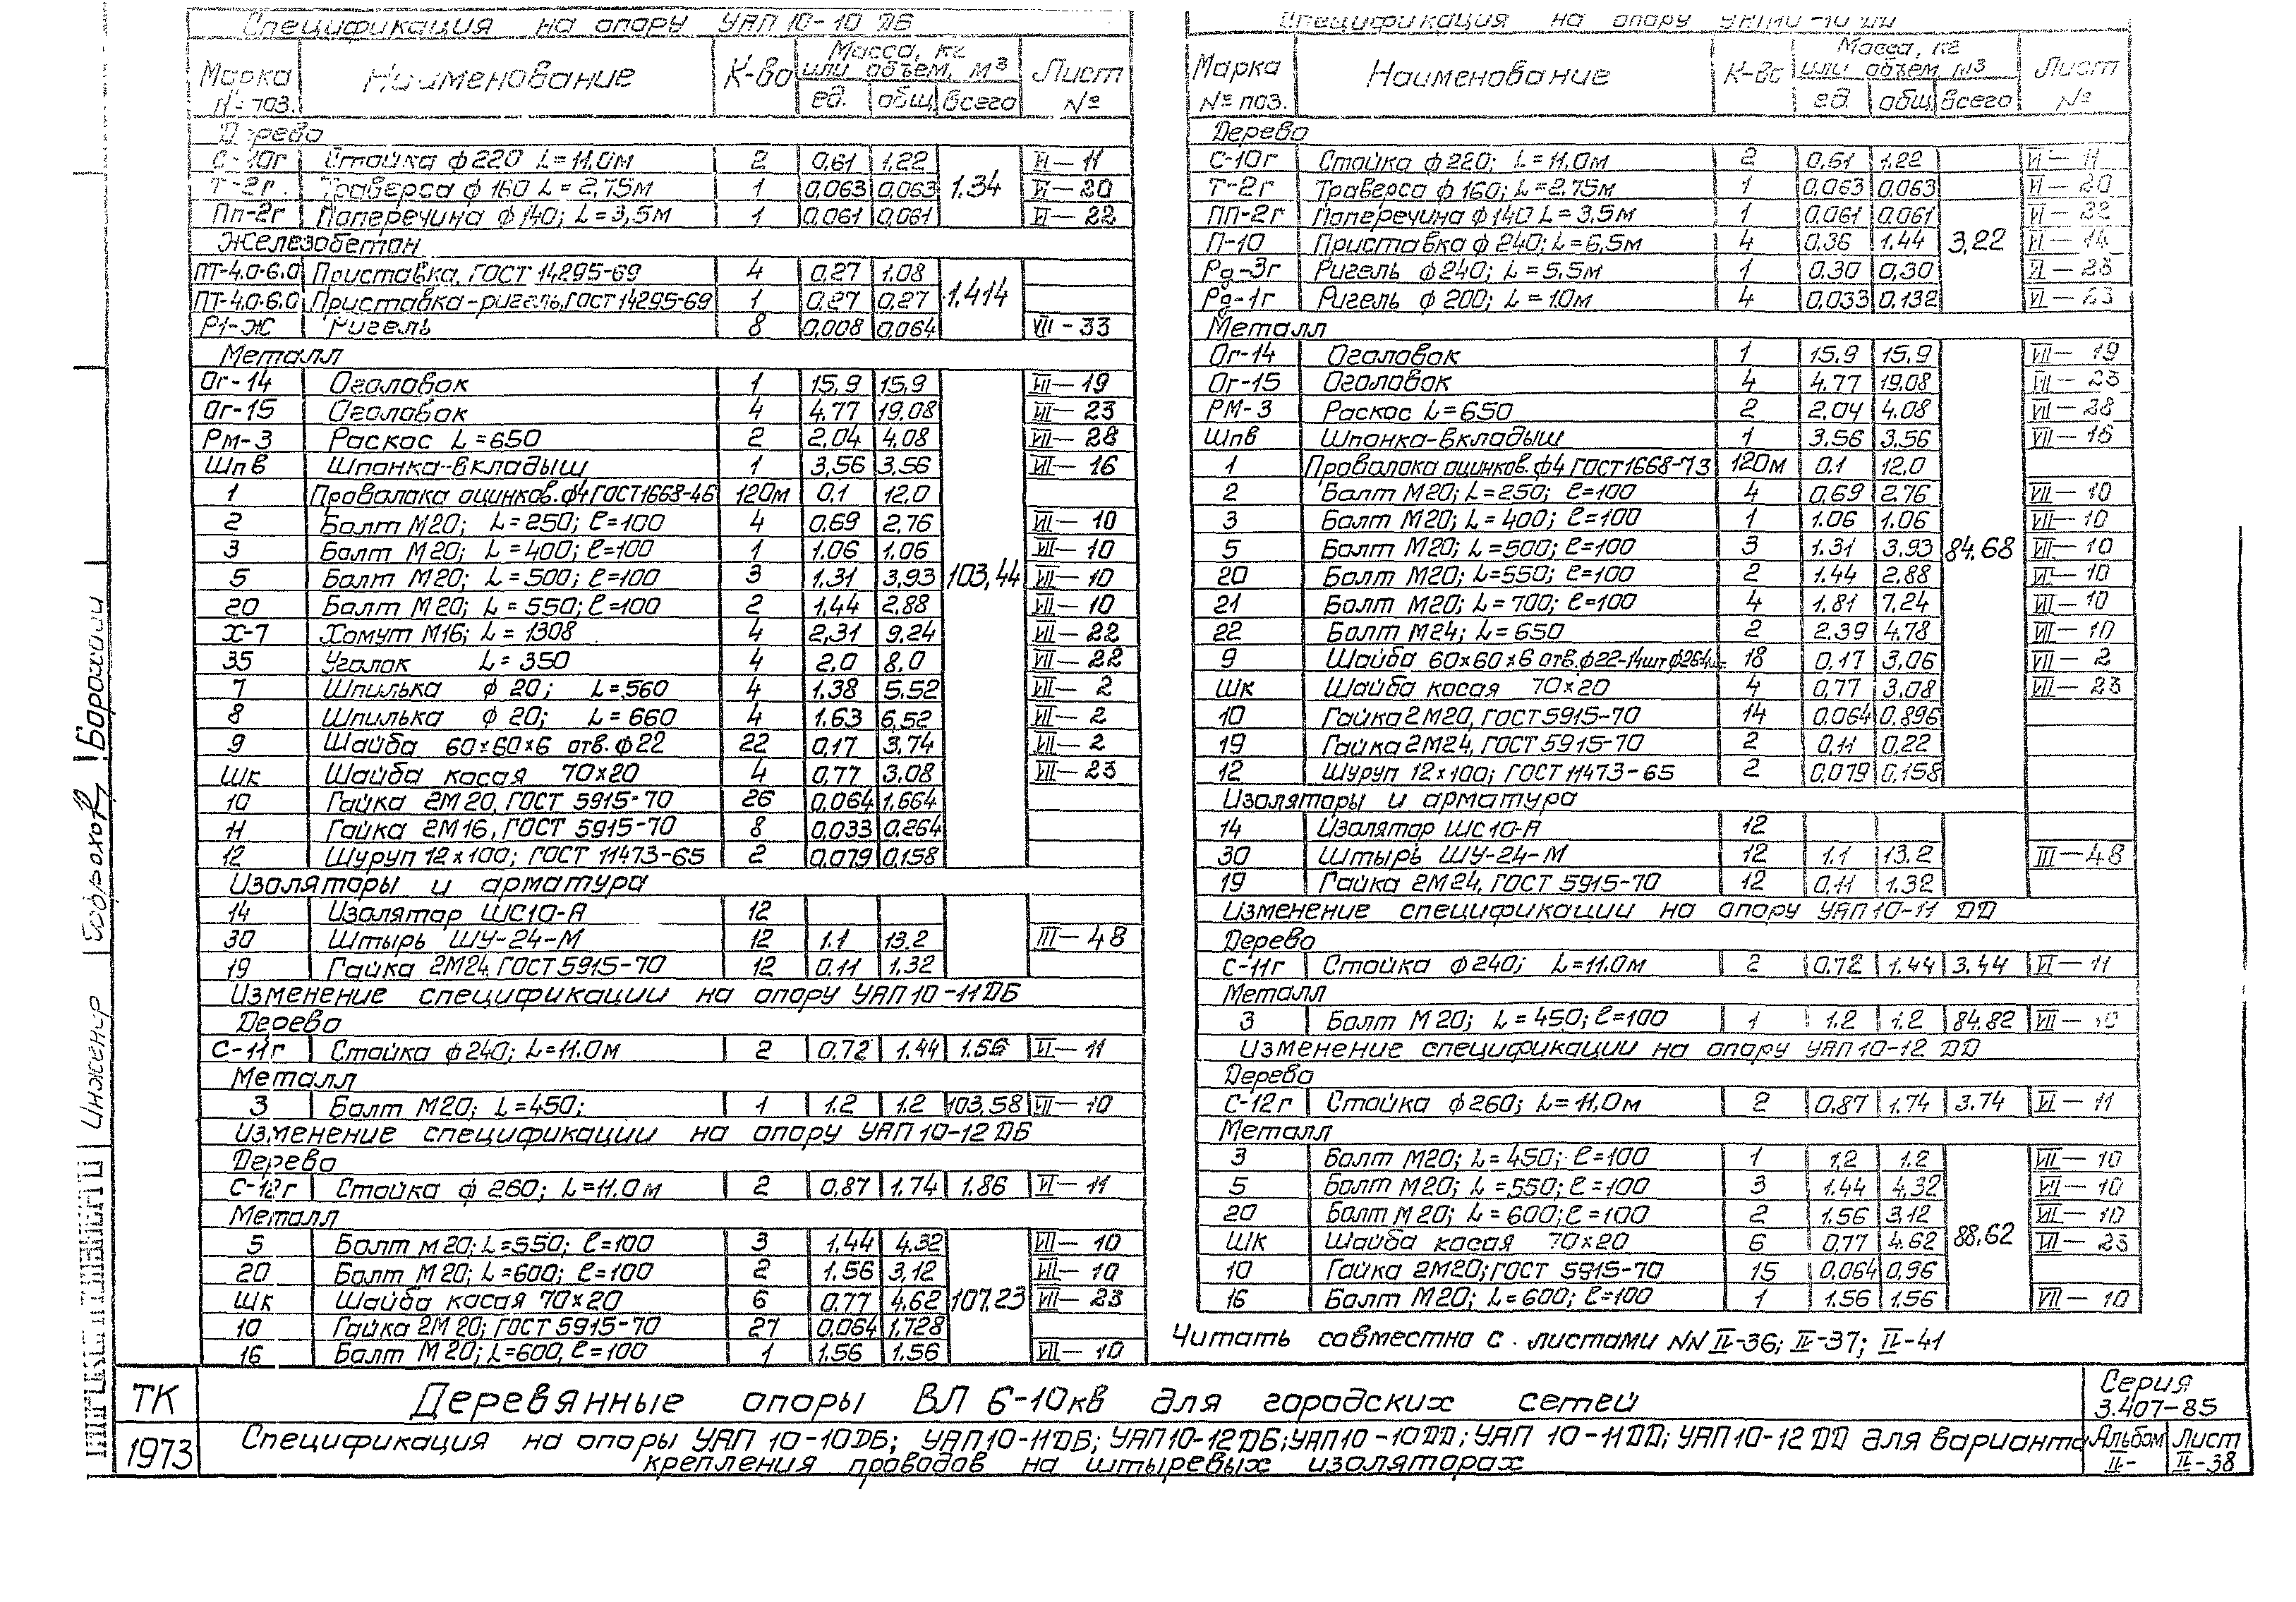 Спецификация на опору УАП 10-10 ДБ
Марка № поз. Наименование К-во Масса, кг или объем, м³ ед. общ. всего Лист №
Дерево
С-10г Стойка ф220 L=11,0м 2 0,61 1,22 1.34 VI-11
Т-2г Траверса ф160 L=2,75м 1 0,063 0,063 VI-20
Пп-2г Поперечина ф140; L=3,5м 1 0,061 0,061 VI-22
Железобетон
ПТ-4.0-6.0 Приставка, ГОСТ 14295-69 4 0,27 1.08 1.414
ПТ-4.0-6.0 Приставка-ригель, ГОСТ 14295-69 1 0,27 0,27
Р1-Ж Ригель 8 0,008 0,064 VII-33
Металл
Ог-14 Оголовок 1 15,9 15,9 103,44 VII-19
Ог-15 Оголовок 4 4,77 19,08 VII-23
Рм-3 Раскос L=650 2 2,04 4,08 VII-28
Шпв Шпонка-вкладыш 1 3,56 3,56 VII-16
1 Проволока оцинков. ф4 ГОСТ 1668-46 120м 0,1 12,0
2 Болт М20; L=250; ℓ=100 4 0,69 2,76 VII-10
3 Болт М20; L=400; ℓ=100 1 1.06 1.06 VII-10
5 Болт М20; L=500; ℓ=100 3 1.31 3,93 VII-10
20 Болт М20; L=550; ℓ=100 2 1,44 2,88 VII-10
Х-7 Хомут М16; L=1308 4 2,31 9.24 VII-22
35 Уголок L=350 4 2.0 8.0 VII-22
7 Шпилька ф20; L=560 4 1.38 5.52 VII-2
8 Шпилька ф20; L=660 4 1.63 6,52 VII-2
9 Шайба 60×60×6 отв. ф22 22 0,17 3,74 VII-2
ШК Шайба косая 70×20 4 0,77 3.08 VII-23
10 Гайка 2М20, ГОСТ 5915-70 26 0,064 1,664
11 Гайка 2М16, ГОСТ 5915-70 8 0,033 0,264
12 Шуруп 12×100; ГОСТ 11473-65 2 0,079 0,158
Изоляторы и арматура
14 Изолятор ШС10-А 12
30 Штырь ШУ-24-М 12 1.1 13.2 III-48
19 Гайка 2М24, ГОСТ 5915-70 12 0.11 1.32
Изменение спецификации на опору УАП 10-11ДБ
Дерево
С-11г Стойка ф240; L=11.0м 2 0,72 1.44 1.56 VI-11
Металл
3 Болт М20; L=450; 1 1.2 1.2 103,58 VII-10
Изменение спецификации на опору УАП 10-12ДБ
Дерево
С-12г Стойка ф260; L=11.0м 2 0,87 1.74 1.86 VI-11
Металл
5 Болт М20; L=550; ℓ=100 3 1.44 4,32 107.23 VII-10
20 Болт М20; L=600; ℓ=100 2 1.56 3,12 VII-10
ШК Шайба косая 70×20 6 0,77 4,62 VII-23
10 Гайка 2М20; ГОСТ 5915-70 27 0,064 1,728
16 Болт М20; L=600, ℓ=100 1 1.56 1.56 VII-10
Спецификация на опору УАП10-10 ДД
Марка № поз. Наименование К-во Масса, кг или объем, м3 ед. общ. всего Лист №
Дерево
С-10г Стойка ф220; L=11,0м 2 0,61 1,22 3,22 VI-11
Т-2г Траверса ф160; L=2,75м 1 0,063 0,063 VI-20
Пп-2г Поперечина ф140 L=3.5м 1 0,061 0,061 VI-22
П-10 Приставка ф240; L=6,5м 4 0,36 1.44 VI-14
Рд-3г Ригель ф240; L=5,5м 1 0.30 0,30 VI-23
Рд-1г Ригель ф200; L=1.0м 4 0,033 0,132 VI-23
Металл
Ог-14 Оголовок 1 15.9 15,9 84.68 VII-19
Ог-15 Оголовок 4 4.77 19.08 VII-23
РМ-3 Раскос L=650 2 2.04 4.08 VII-28
Шпв Шпонка-вкладыш 1 3.56 3.56 VII-16
1 Проволока оцинков. ф4 ГОСТ 1668-73 120м 0.1 12.0
2 Болт М20; L=250; ℓ=100 4 0,69 2.76 VII-10
3 Болт М20; L=400; ℓ=100 1 1.06 1.06 VII-10
5 Болт М20; L=500; ℓ=100 3 1.31 3.93 VII-10
20 Болт М20; L=550; ℓ=100 2 1.44 2.88 VII-10
21 Болт М20; L=700; ℓ=100 4 1.81 7,24 VII-10
22 Болт М24; L=650 2 2.39 4.78 VII-10
9 Шайба 60×60×6 отв. ф22-14шт ф26 4шт 18 0,17 3,06 VII-2
ШК Шайба косая 70×20 4 0,77 3.08 VII-23
10 Гайка 2М20, ГОСТ 5915-70 14 0,064 0.896
19 Гайка 2М24, ГОСТ 5915-70 2 0,11 0,22
12 Шуруп 12×100; ГОСТ 11473-65 2 0,079 0,158
Изоляторы и арматура
14 Изолятор ШС10-А 12
30 Штырь ШУ-24-М 12 1.1 13.2 III-48
19 Гайка 2М24, ГОСТ 5915-70 12 0,11 1.32
Изменение спецификации на опору УАП 10-11 ДД
Дерево
С-11г Стойка ф240; L=11.0м 2 0,72 1.44 3.44 VI-11
Металл
3 Болт М20; L=450; ℓ=100 1 1.2 1.2 84.82 VII-10
Изменение спецификации на опору УАП 10-12 ДД
Дерево
С-12г Стойка ф260; L=11,0м 2 0,87 1,74 3.74 VI-11
Металл
3 Болт М20; L=450; ℓ=100 1 1,2 1.2 88.62 VII-10
5 Болт М20; L=550; ℓ=100 3 1.44 4,32 VII-10
20 Болт М20; L=600; ℓ=100 2 1.56 3,12 VII-10
ШК Шайба косая 70×20 6 0,77 4.62 VII-23
10 Гайка 2М20; ГОСТ 5915-70 15 0,064 0,96
16 Болт М20; L=600; ℓ=100 1 1.56 1.56 VII-10
Читать совместно с листами NN II-36; II-37; II-41
Инженер
ТК
1973
Деревянные опоры ВЛ 6-10кв для городских сетей
Спецификация на опоры УАП 10-10ДБ; УАП10-11ДБ; УАП10-12ДБ; УАП10-10ДД; УАП 10-11ДД; УАП10-12 ДД для варианта
крепления проводов на штыревых изоляторах
Серия
3.407-85
Альбом II-
Лист II-38